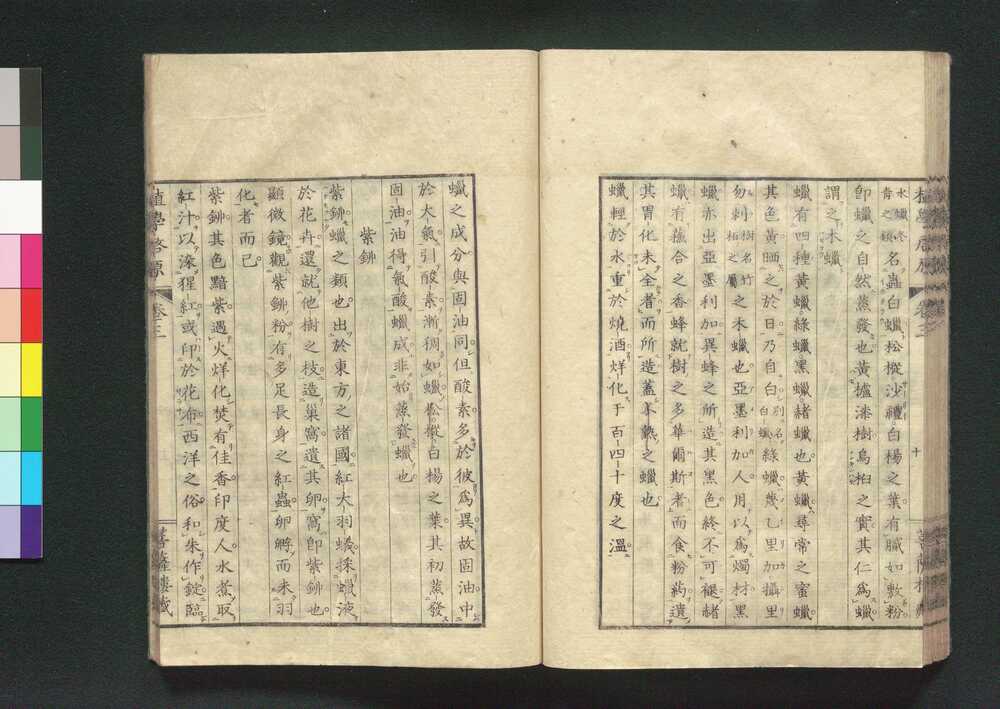 水蠟冬青之類名蟲白蠟松樅沙禮白楊之葉有膩如敷粉
卽蠟之自然蒸發也黃櫨漆樹烏桕之實其仁爲蠟
謂之木蠟
蠟有四種黃蠟綠蠟黑蠟赭蠟也黃蠟尋常之蜜蠟
其色黃晒之於日乃自白別名白蠟綠蠟幾乙里加攝里
勿剌樹名竹柘之屬之木蠟也亞墨利加人用以爲燭材黑
蠟亦出亞墨利加異蜂之所造其黑色終不可褪赭
蠟有蘇合之香蜂就樹之多華爾斯者而食粉葯遺
其胃化未全者而所造蓋未熟之蠟也
蠟輕於水重於燒酒烊化于百四十度之溫
十
蠟之成分與固油同但酸素多於彼爲異故固油中
於大氣引酸素漸稠如蠟松樅白楊之葉其初蒸發
固油油得氣酸蠟成非始蒸發蠟也
紫鉚
紫鉚蠟之類也出於東方之諸國紅大羽蟻採蠟液
於花卉還就他樹之枝造巢窩遺其卵窩卽紫鉚也
顯微鏡觀紫鉚粉有多足長身之紅蟲卵孵而未羽
化者而已
紫鉚其色黯紫遇火烊化焚有佳香印度人水煮取
紅汁以染猩紅或印於花布西洋之俗和朱作錠臨
植學啓原 卷三 菩薩樓藏